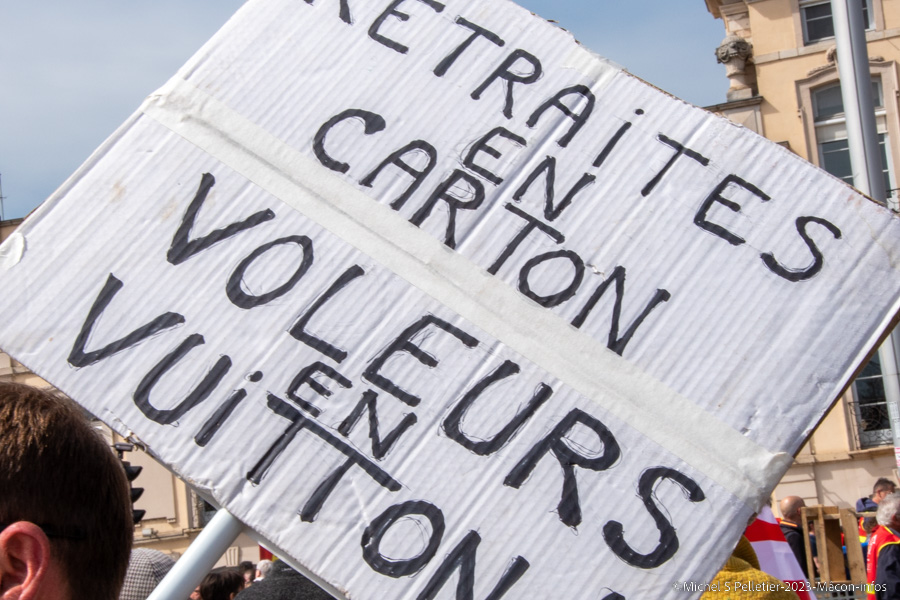 RETRAiTES
EN
CARTON
VOLEURS
EN
VUiTTON
© Michel S Pelletier-2023-Macon-infos